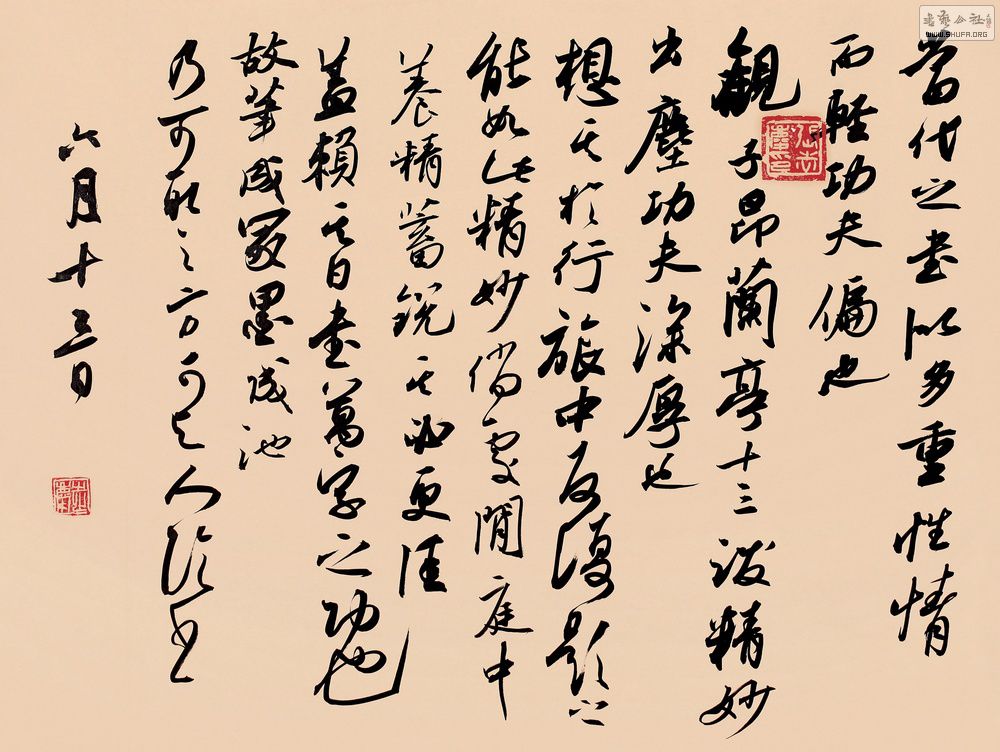 當代之書所多重性情
而輕功夫偏也
觀子昂蘭亭十三跋精妙
出塵功夫深厚也
想其於行旅中反復題之
能如此精妙倘處閒庭中
養精蓄銳其必更佳
蓋賴其日書萬字之功也
故筆成冢墨成池
乃可取之方可與人論書
六月十三日
WWW.SHUFA.ORG